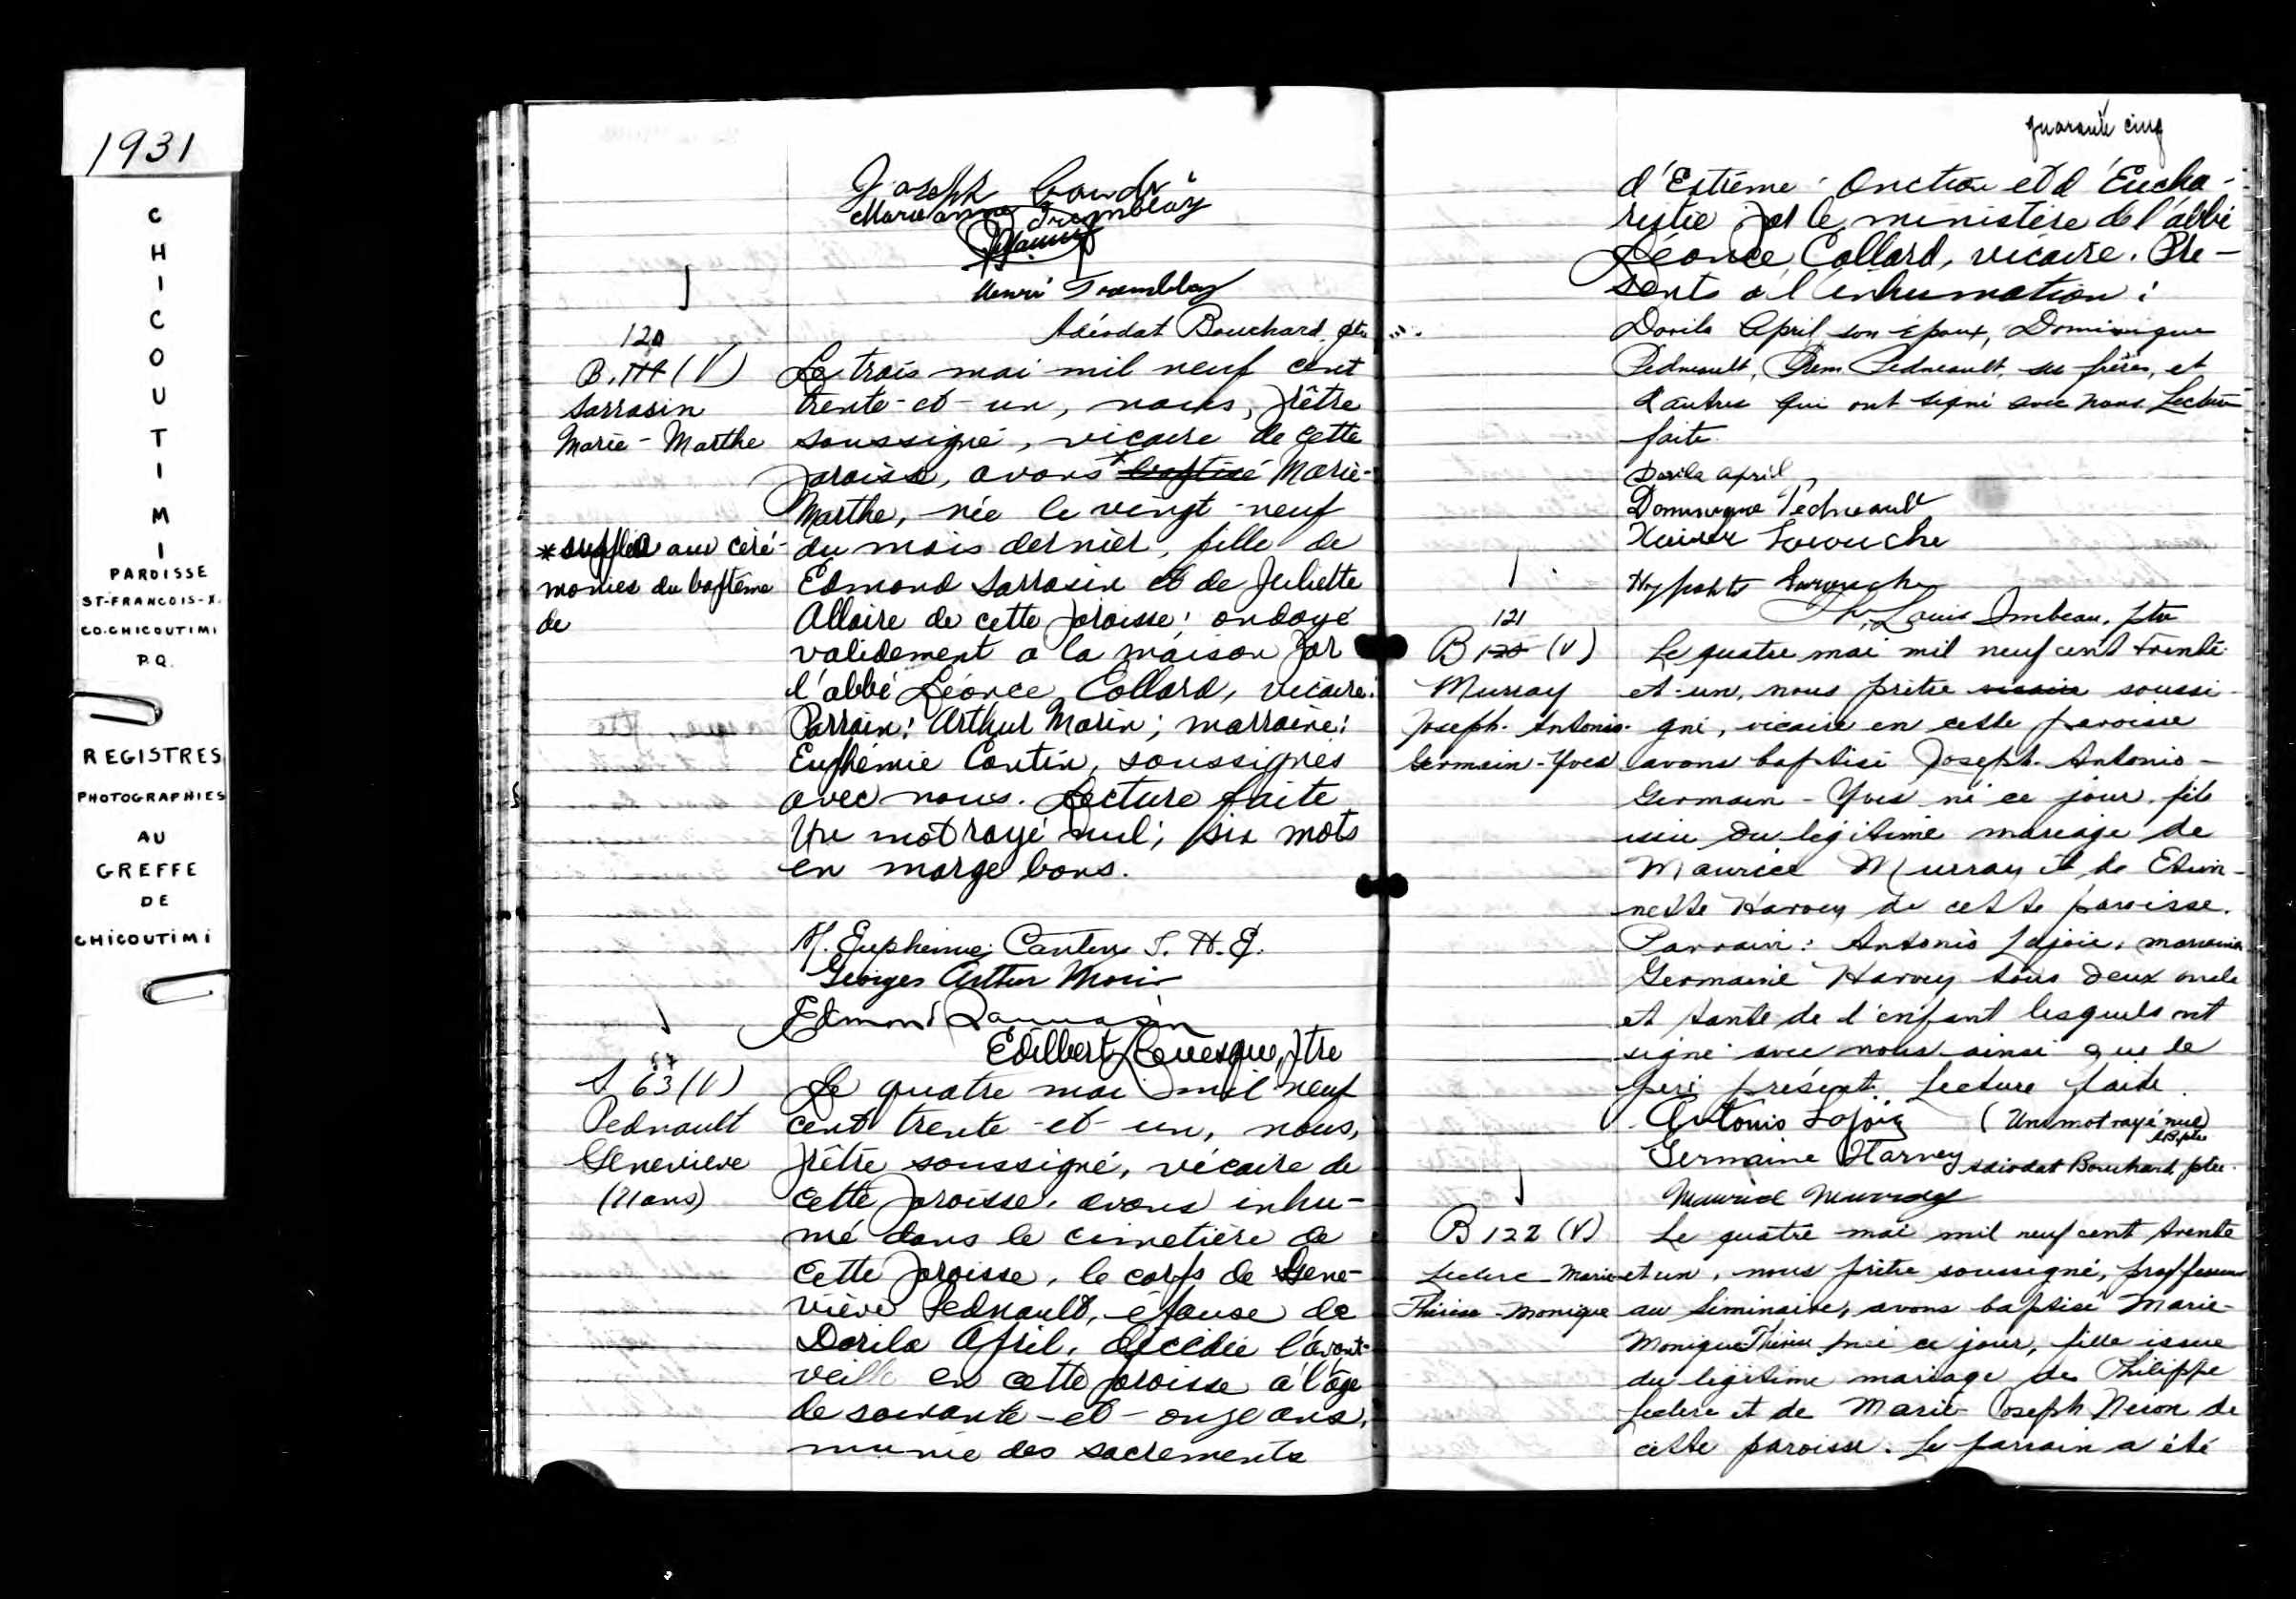 1931
CHICOUTIMI
PAROISSE
ST-FRANCOIS-X.
CO.CHICOUTIMI
P.Q.
REGISTRES
PHOTOGRAPHIES
AU
GREFFE
DE
CHICOUTIMI
Joseph
Marie anna Tremblay
Henri Tremblay
Adéodat Bouchard, ptre
120
B. (V)
Sarrasin
Marie-Marthe
* suppléé aux céré-
monies du baptême
de
Le trois mai mil neuf cent
trente-et-un, nous, prêtre
soussigné, vicaire de cette
paroisse, avons * baptisé Marie-
Marthe, née le vingt-neuf
du mois dernier, fille de
Edmond Sarrasin et de Juliette
Allaire de cette paroisse; ondoyé
validement à la maison par
l'abbé Léonce Collard, vicaire.
Parrain: Arthur Morin; marraine:
Euphémie Cantin, soussignés
avec nous. Lecture faite.
Un mot rayé nul; six mots
en marge bons.
M. Euphemie Cantin
Georges Arthur Morin
Edmond Sarrasin
Edilbert Levesque, ptre
S 63 (V)
Pednault
Geneviève
(71 ans)
Le quatre mai mil neuf
cent trente-et-un, nous,
prêtre soussigné, vicaire de
cette paroisse, avons inhu-
mé dans le cimetière de
cette paroisse, le corps de Gene-
viève Pednault, épouse de
Dorila April, décédée l'avant-
veille en cette paroisse à l'âge
de soixante-et-onze ans,
munie des sacrements
quarante cinq
d'Extrême-Onction et d'Eucha-
ristie par le ministère de l'abbé
Léonce Collard, vicaire. Pré-
sents à l'inhumation:
Dorila April, son époux, Dominique
Pedneault, Pedneault, ses frères, et
d'autres qui ont signé avec nous. Lecture
faite.
Dorila April
Dominique Pedneault
Xavier Larouche
Larouche
Louis Imbeau, ptre
121
B 120 (V)
Murray
Joseph-Antonio-
Germain-Yves
Le quatre mai mil neuf cent trente-
et-un, nous prêtre vicaire soussi-
gné, vicaire en cette paroisse
avons baptisé Joseph-Antonio-
Germain-Yves né ce jour, fils
issu du légitime mariage de
Maurice Murray et de Etien-
nette Harvey de cette paroisse.
Parrain: Antonio Lajoie, marraine
Germaine Harvey tous deux oncle
et tante de l'enfant lesquels ont
signé avec nous ainsi que le
père présent. Lecture faite.
Antonio Lajoie (Un mot rayé nul)
A.B. ptre
Germaine Harvey Adéodat Bouchard, ptre.
Maurice Murray
B 122 (V)
Leclerc Marie
Thérèse-Monique
Le quatre mai mil neuf cent trente
et un, nous prêtre soussigné, professeur
au Séminaire, avons baptisé Marie-
Monique Thérèse née ce jour, fille issue
du légitime mariage de Philippe
Leclerc et de Marie-Joseph Néron de
cette paroisse. Le parrain a été